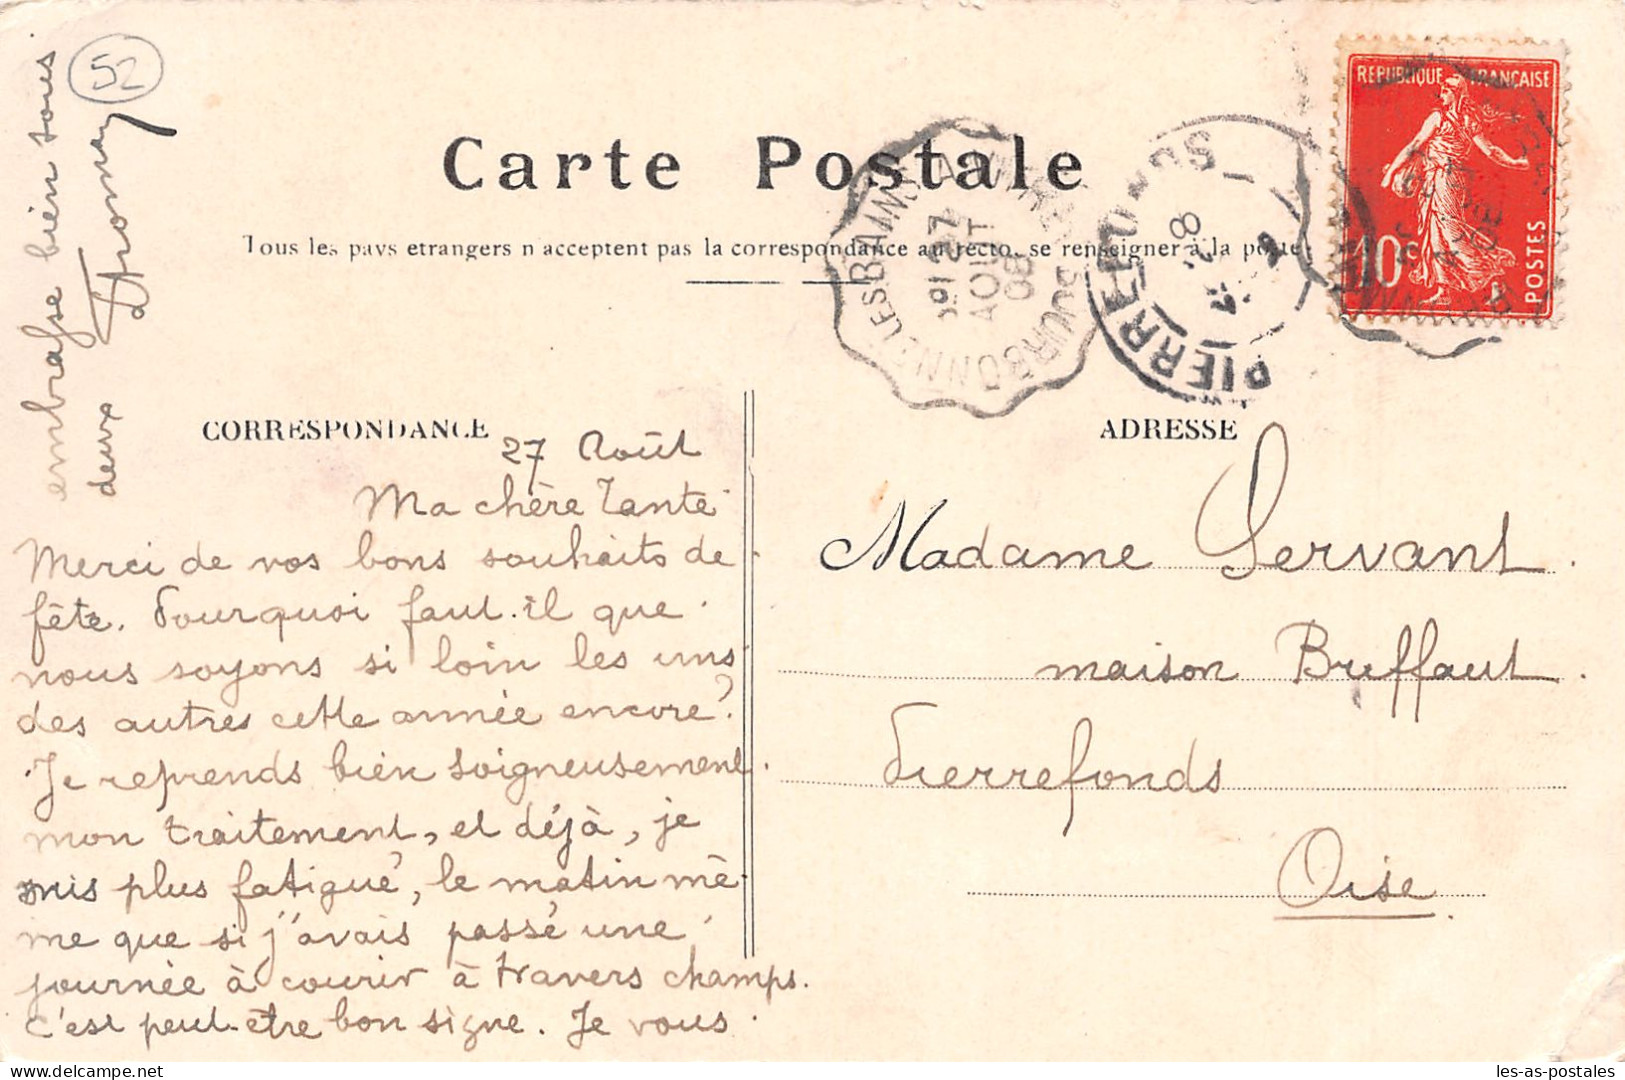 52
Carte Postale
Tous les pays etrangers n acceptent pas la correspondance au recto, se renseigner à la poste
REPUBLIQUE FRANÇAISE
10c
POSTES
BOURBONNE LES BAINS
27
AOUT
08
PIERREFONDS
CORRESPONDANCE
ADRESSE
27 Août
Ma chère Tante
Merci de vos bons souhaits de
fête. Pourquoi faut-il que
nous soyons si loin les uns
des autres cette année encore?
Je reprends bien soigneusement
mon traitement, et déjà, je
suis plus fatigué, le matin mê-
me que si j'avais passé une
journée à courir à travers champs.
C'est peut-être bon signe. Je vous
embrasse bien tous
deux
Madame Servant
maison Breffaut
Pierrefonds
Oise
les-as-postales